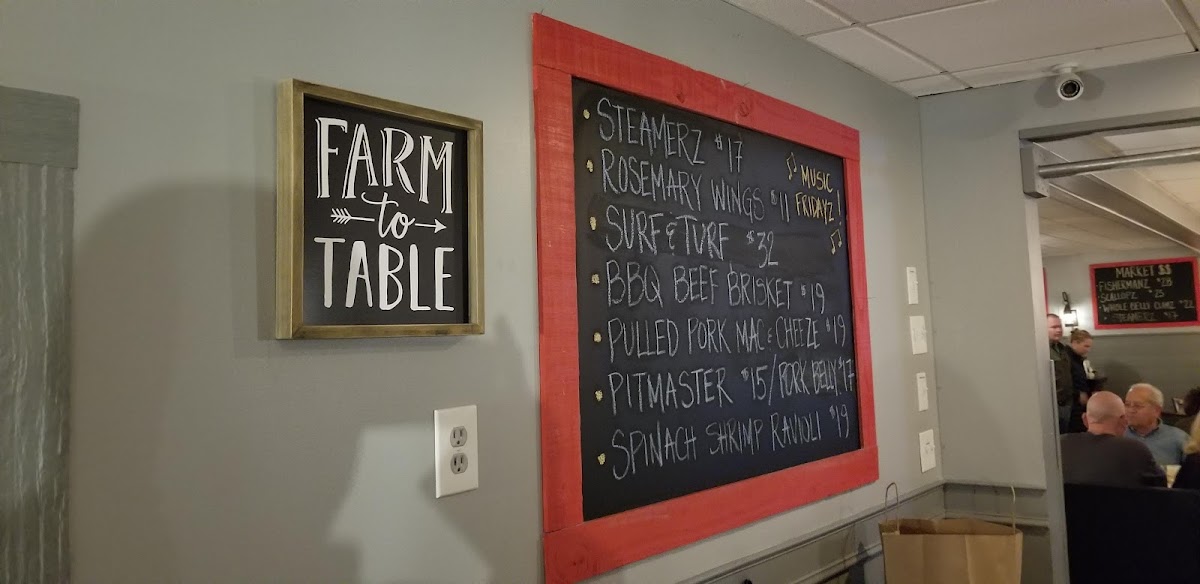 FARM
to
TABLE
STEAMERZ $17
ROSEMARY WINGS $11
SURF & TURF $32
BBQ BEEF BRISKET $19
PULLED PORK MAC & CHEEZE $19
PITMASTER $15/PORK BELLY $17
SPINACH SHRIMP RAVIOLI $19
MUSIC
FRIDAYZ!
MARKET $$
FISHERMANZ $28
SCALLOPZ $25
WHOLE BELLY CLAMZ $22
STEAMERZ $17